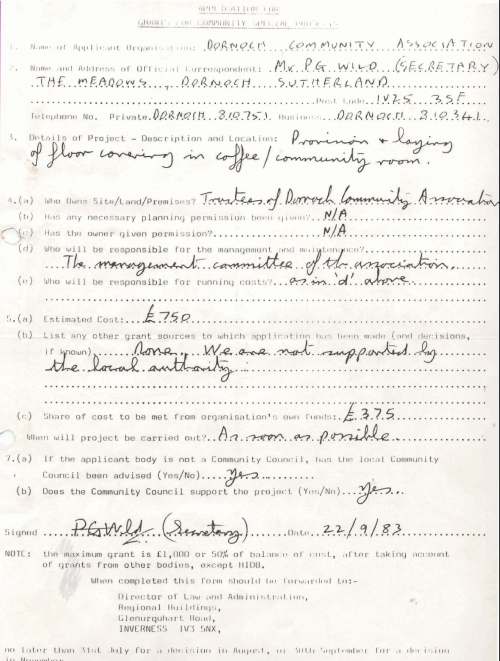 APPLICATION FOR
GRANTS FOR COMMUNITY SPECIAL PROJECTS
1. Name of Applicant Organisation: DORNOCH COMMUNITY ASSOCIATION
2. Name and Address of Official Correspondent: Mr. P.G. WILD (SECRETARY)
THE MEADOWS, DORNOCH SUTHERLAND
Post Code IV25 3SF
Telephone No. Private. DORNOCH 810751. Business. DORNOCH 810341.
3. Details of Project - Description and Location: Provision & laying
of floor covering in coffee/community room.
4.(a) Who Owns Site/Land/Premises? Trustees of Dornoch Community Association
(b) Has any necessary planning permission been given? N/A
(c) Has the owner given permission? N/A
(d) Who will be responsible for the management and maintenance?
The management committee of the association.
(e) Who will be responsible for running costs? as in 'd' above
5.(a) Estimated Cost: £750
(b) List any other grant sources to which application has been made (and decisions,
if known) None. We are not supported by
the local authority
(c) Share of cost to be met from organisation's own funds: £375
When will project be carried out? As soon as possible
7.(a) If the applicant body is not a Community Council, has the local Community
Council been advised (Yes/No) Yes
(b) Does the Community Council support the project (Yes/No) Yes
Signed PG Wild (Secretary) Date 22/9/83
NOTE: the maximum grant is £1,000 or 50% of balance of cost, after taking account
of grants from other bodies, except HIDB.
When completed this form should be forwarded to:-
Director of Law and Administration,
Regional Buildings,
Glenurquhart Road,
INVERNESS IV3 5NX,
no later than 31st July for a decision in August, or 30th September for a decision
in November